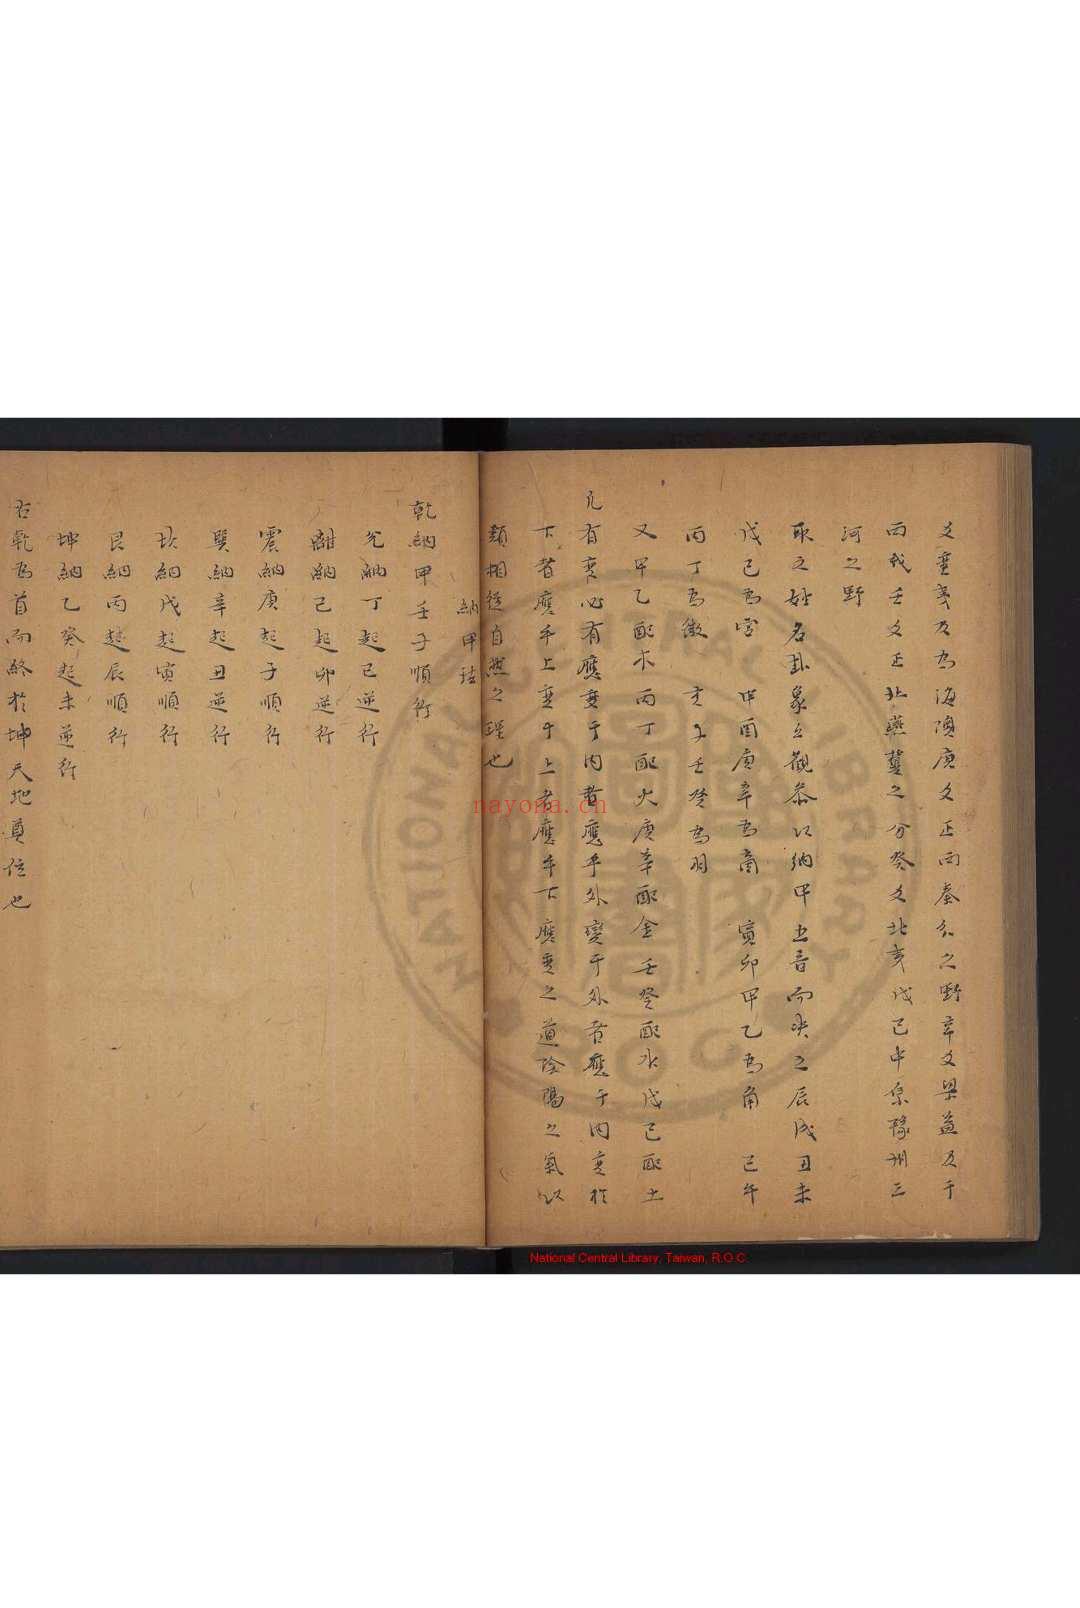 又東夷及為海隅庚又正西秦分之野辛又梁益及于
西戎壬又正北燕冀之分癸又北夷戊己中原豫州三
河之野
取之姓名卦象以觀叅以納甲五音而决之辰戌丑未
戊己為宮 申酉庚辛為商 寅卯甲乙為角 巳午
丙丁為徵 亥子壬癸為羽
又甲乙配木丙丁配火庚辛配金壬癸配水戊己配土
凡有变必有應变于内者應乎外變于外者應于内变於
下者應乎上变于上者應乎下應变之道陰陽之氣以
類相從自然之理也
納甲法
乾納甲壬子順行
兊納丁起巳逆行
離納己起卯逆行
震納庚起子順行
巽納辛起丑逆行
坎納戊起寅順行
艮納丙起辰順行
坤納乙癸起未逆行
右乾為首而終於坤天地奠位也
NATIONAL CENTRAL LIBRARY
nayona.cn
National Central Library, Taiwan, R.O.C